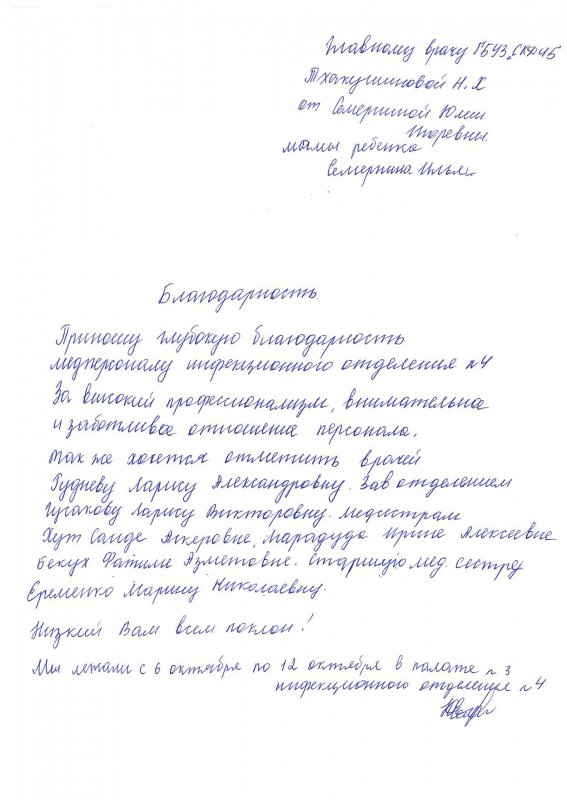 Главному врачу ГБУЗ „СКДИБ
Тхакушиновой Н.Х
от Семеркиной Юлии
Игоревны.
мамы ребенка
Семеркина Ильи
Благодарность.
Приношу глубокую благодарность
медперсоналу инфекционного отделения №4
За високий профессионализм, внимательное
и заботливое отношение персонала.
Так же хочется отметить врачей
Рудневу Ларису Александровну. Зав отделением
Гусакову Ларису Викторовну. медсестрам
Хут Саиде Аскеровне, Марадуда Ирине Алексеевне
бекух Фатиме Азметовне. Старшую мед. сестру
Еременко Марину Николаевну.
Низкий Вам всем поклон!
Мы лежали с 6 октября по 12 октября в палате №3
инфекционного отделения №4